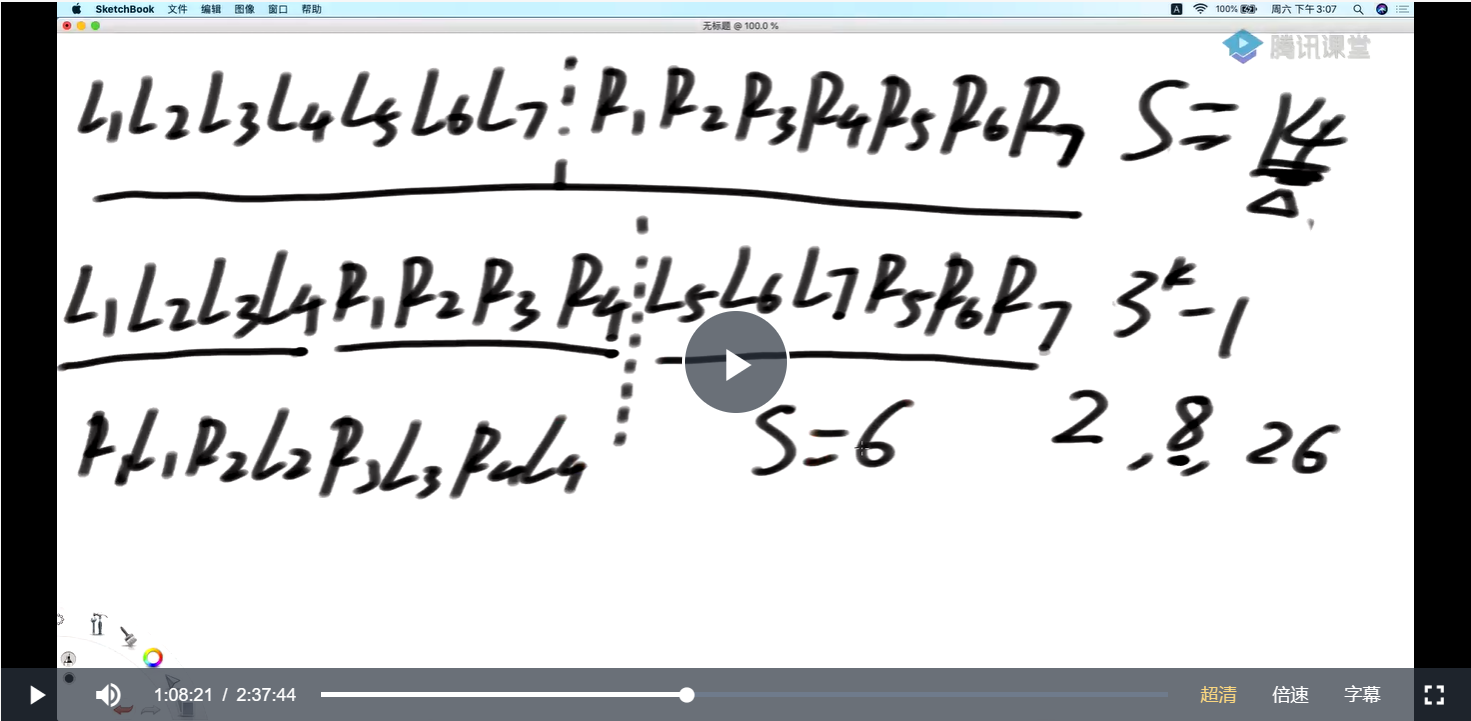 SketchBook 文件 编辑 图像 窗口 帮助 A 100% 周六 下午3:07
无标题 @ 100.0 %
腾讯课堂
L1L2L3L4L5L6L7 R1R2R3R4R5R6R7 S=14
L1L2L3L4R1R2R3R4 L5L6L7R5R6R7 3^k-1
R1L1R2L2R3L3R4L4 S=6 2,8,26
1:08:21 / 2:37:44 超清 倍速 字幕